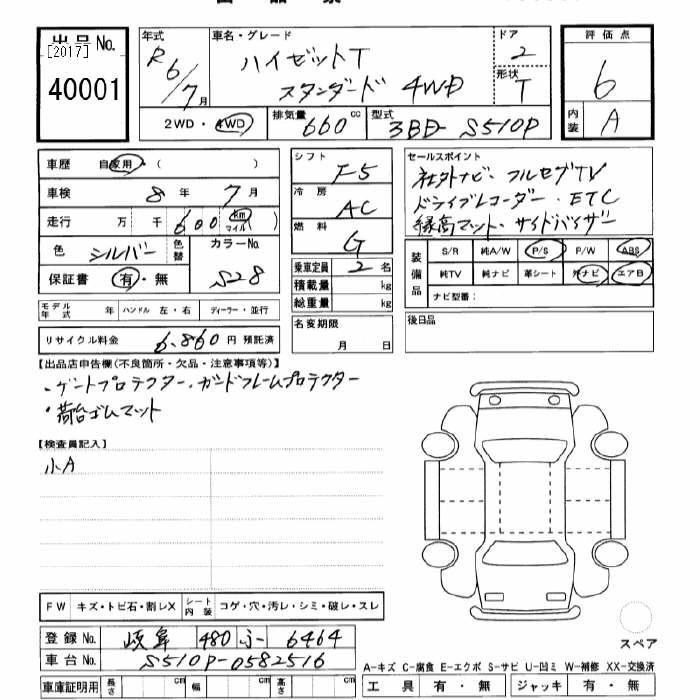 出品No.
[2017]
40001
年式
R6/7月
車名・グレード
ハイゼットT
スタンダード 4WD
ドア
2
形状
T
評価点
6
内装
A
2WD・4WD
排気量
660 cc
型式
3BD-S510P
車歴 自家用・( )
車検 8年 7月
走行 万 千 600 km マイル ( )
色 シルバー 色替
カラーNo.
S28
保証書 有・無
モデル年式 年 ハンドル 左・右 ディーラー・並行
リサイクル料金 6,860円 預託済
シフト
F5
冷房
AC
燃料
G
乗車定員 2名
積載量 kg
総重量 kg
名変期限
月 日
セールスポイント
社外ナビ・フルセグTV
ドライブレコーダー・ETC
縁高マット・サイドバイザー
装備品
S/R 純A/W P/S P/W ABS
純TV 純ナビ 革シート 外ナビ エアB
ナビ型番:
後日品
【出品店申告欄(不良箇所・欠品・注意事項等)】
・ゲートプロテクター・ガードフレームプロテクター
・荷台ゴムマット
【検査員記入】
小A
FW キズ・トビ石・割レX シート内装 コゲ・穴・汚レ・シミ・破レ・スレ
登録No. 岐阜 480 ふ 6464
車台No. S510P-0582516
車庫証明用 長さ cm 幅 cm 高さ cm
スペア
A-キズ C-腐食 E-エクボ S-サビ U-凹ミ W-補修 XX-交換済
工具 有・無 ジャッキ 有・無